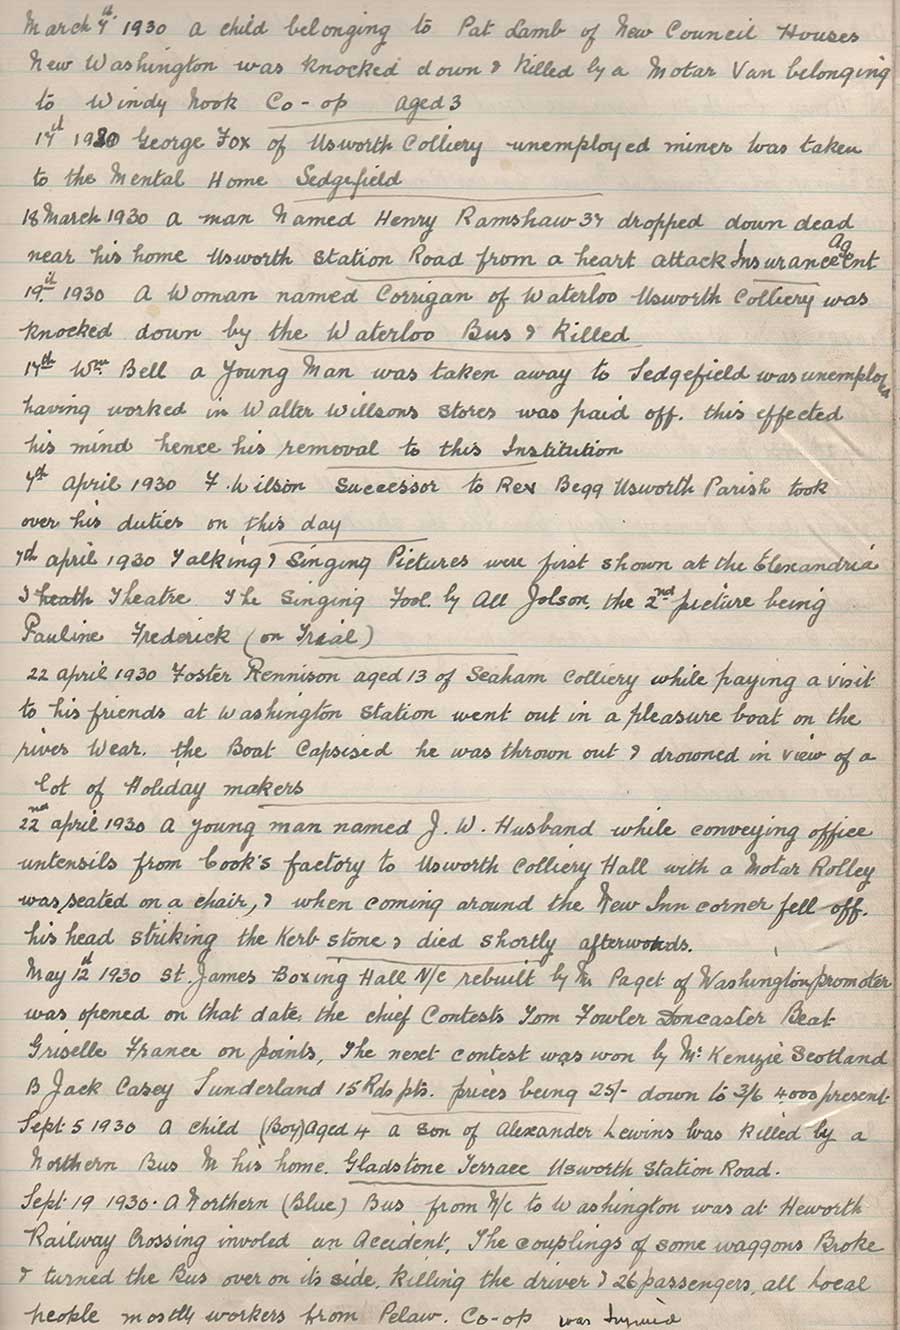 March 7th 1930 A child belonging to Pat Lamb of New Council Houses
New Washington was knocked down & killed by a Motar Van belonging
to Windy Nook Co-op aged 3
17th 1930 George Fox of Usworth Colliery unemployed miner was taken
to the Mental Home Sedgefield
18 March 1930 A man Named Henry Ramshaw 37 dropped down dead
near his home Usworth Station Road from a heart attack Insurance Agent
19th 1930 A Woman named Corrigan of Waterloo Usworth Colliery was
knocked down by the Waterloo Bus & Killed
17th Wm Bell a Young Man was taken away to Sedgefield was unemployed
having worked in Walter Willsons Stores was paid off. this effected
his mind hence his removal to this Institution
7th April 1930 F. Wilson Successor to Rex Begg Usworth Parish took
over his duties on this day
7th april 1930 Talking & Singing Pictures were first shown at the Elexandria
Theatre The Singing Fool. by All Jolson, the 2nd picture being
Pauline Frederick (on Trial)
22 april 1930 Foster Rennison aged 13 of Seaham Colliery while paying a visit
to his friends at Washington Station went out in a pleasure boat on the
river Wear. the Boat Capsised he was thrown out & drowned in view of a
lot of Holiday makers
22nd april 1930 A young man named J. W. Husband while conveying office
untensils from Cook's factory to Usworth Colliery Hall with a Motar Rolley
was seated on a chair, & when coming around the New Inn corner fell off.
his head striking the Kerb stone & died shortly afterwords.
May 12th 1930 St. James Boxing Hall N/C rebuilt by Mr Paget of Washington promoter
was opened on that date. the chief Contests Tom Fowler Doncaster Beat
Griselle France on points, The next contest was won by Mc Kenzie Scotland
B Jack Casey Sunderland 15 Rds pts. prices being 25/- down to 3/6 4000 present.
Sept. 5 1930 A child (Boy) Aged 4 a son of Alexander Lewins was killed by a
Northern Bus N his home. Gladstone Terrace Usworth Station Road.
Sept. 19 1930. A Northern (Blue) Bus from N/c to Washington was at Heworth
Railway Crossing involed an Accident, The couplings of some waggons Broke
& turned the Bus over on its side, killing the driver & 26 passengers, all Local
people mostly workers from Pelaw. Co-op was Injured